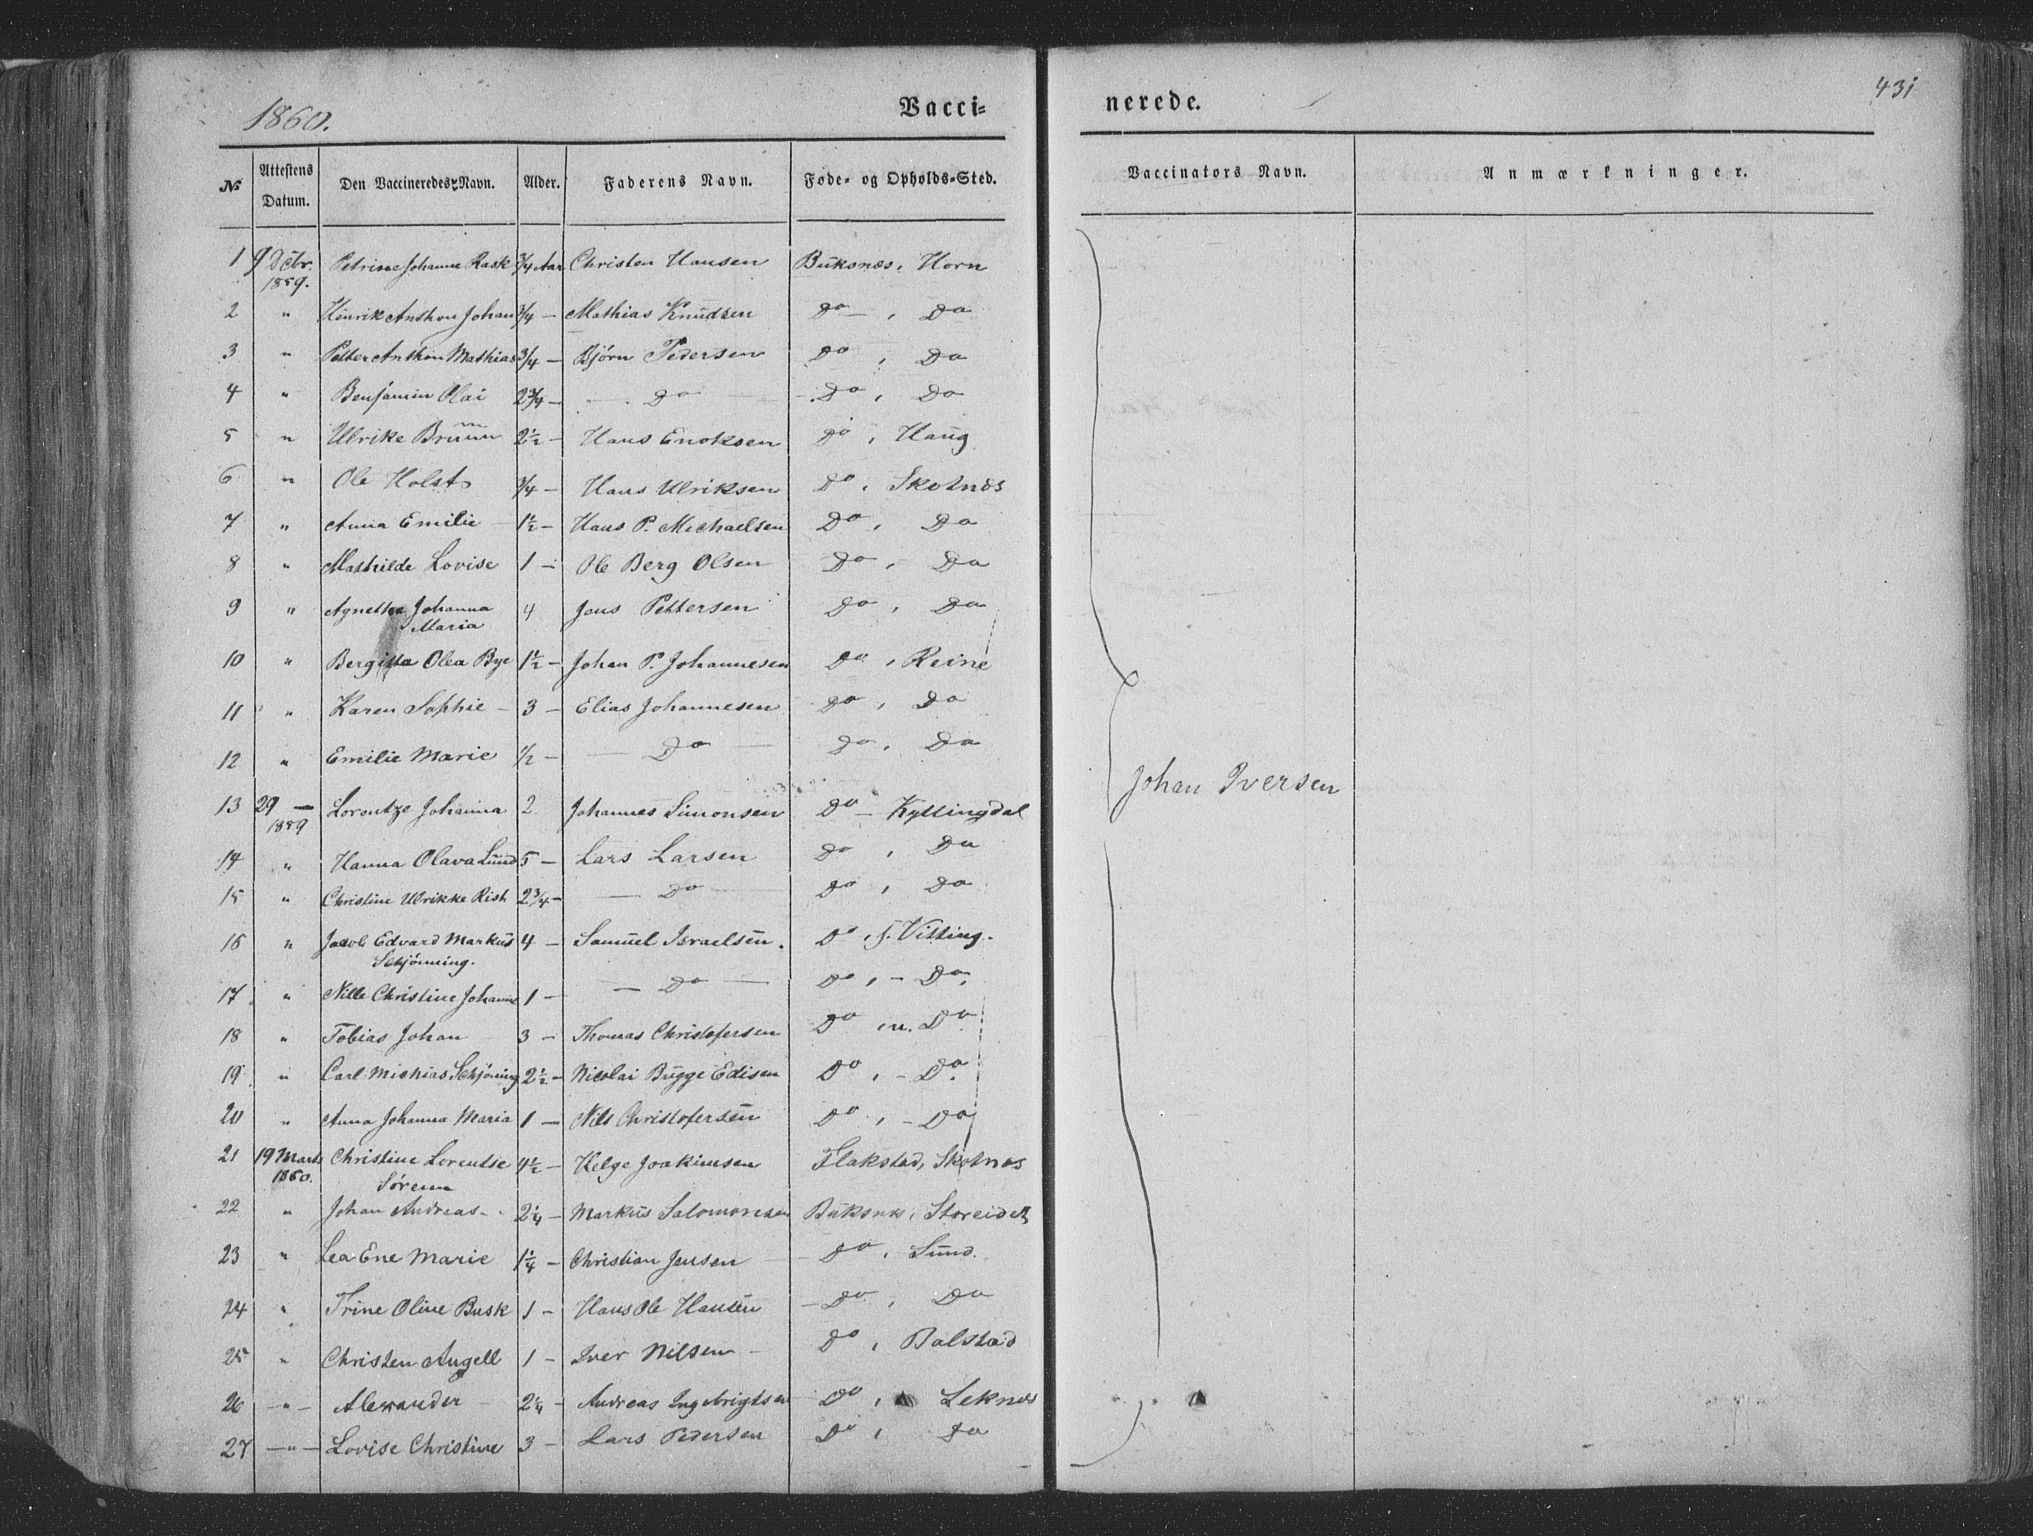 1860.
Vacci-
nerede.
431
№ Attestens Datum. Den Vaccineredes Navn. Alder. Faderens Navn. Føde- og Opholds-Sted. Vaccinators Navn. Anmærkninger.
1 9 Octbr. 1859. Petrine Johanne Rask 3/4 Aar Christen Hansen Buksnæs, Horn
2 " Henrik Anthon Johan 3/4 — Mathias Knudsen Do — , Do
3 " Petter Anthon Mathias 3/4 — Bjørn Pedersen Do , Do
4 " Benjamin Olai 2 3/4 — — Do — Do , Do
5 " Ulrike Bruun 2 1/2 — Hans Enoksen Do , Haug
6 " Ole Holst 3/4 — Hans Ulriksen Do , Skotnæs
7 " Anna Emilie 1 1/2 — Hans P. Michaelsen Do , Do
8 " Mathilde Lovise 1 — Ole Berg Olsen Do , Do
9 " Agnetha Johanna Maria 4 Jens Pettersen Do , Do
10 " Bergitta Olea Bye 1 1/2 — Johan P. Johannesen Do , Reine
11 " Karen Sophie — 3 — Elias Johannesen Do , Do
12 " Emilie Marie 1/2 — — Do — Do , Do
13 29 — 1859 Lorentze Johanna 2 Johannes Simonsen Do — Kyllingdal
14 " Hanna Olava Lund 5 — Lars Larsen Do , Do
15 " Christine Ulrikke Rist 2 3/4 — — Do — Do , Do
16 " Jacob Edvard Markus Schjönning. 4 — Samuel Israelsen. Do , s. Vitting.
17 " Nille Christine Johanne 1 — — Do — Do , — Do,
18 " Tobias Johan 3 — Thomas Christofersen Do , n. Do
19 " Carl Michias Schjöning 2 1/2 — Nicolai Bugge Edisen Do , — Do.
20 " Anna Johanna Maria 1 — Nils Christofersen Do , — Do
21 19 Marts 1860. Christine Lorentse Sörenn 4 1/2 — Helge Joakimsen Flakstad, Skotnæs
22 " Johan Andreas — 2 1/4 — Markus Salomonsen Buksnæs, Storeidet
23 " Lea Ene Marie 1 1/4 — Christian Jensen — Do , Sund.
24 " Trine Oline Busk 1 — Hans Ole Hansen — Do , Do
25 " Christen Angell 1 — Iver Nilsen — Do , Balstad
26 — " — Alexander 2 1/4 — Andreas Ingebrigtsen Do , Leknæs
27 — " — Lovise Christine 3 — Lars Pedersen Do , Do
Johan Iversen